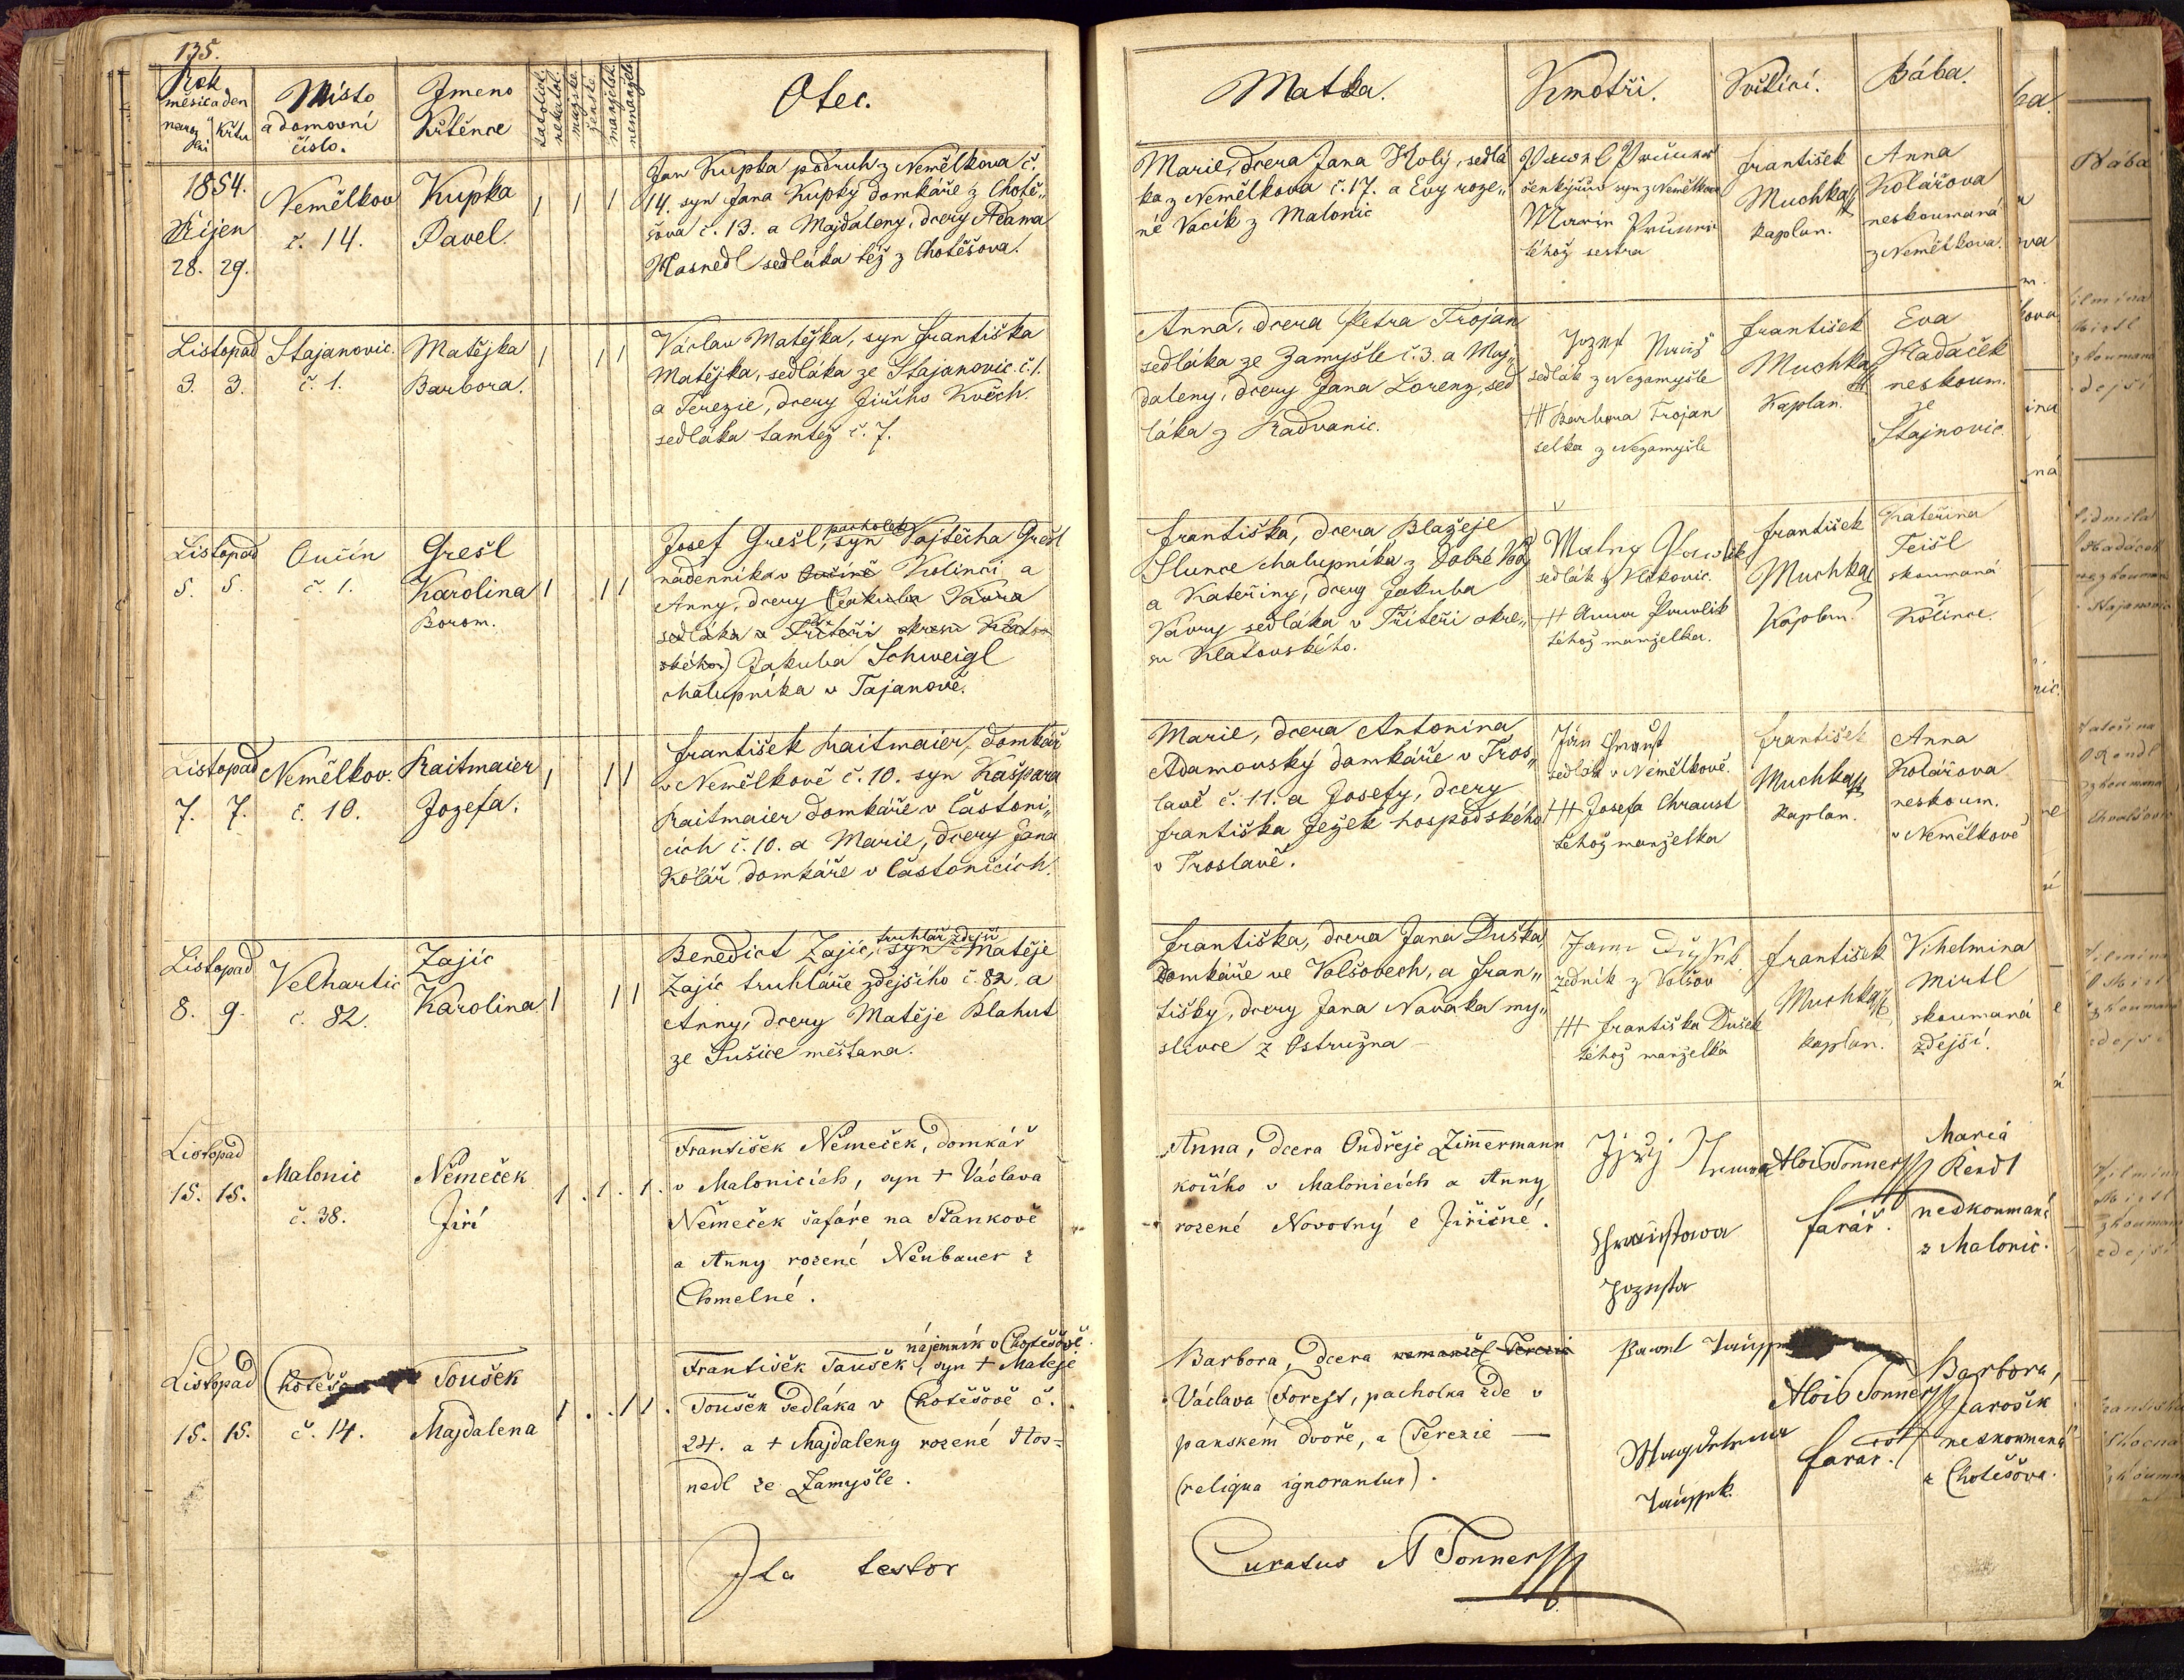 135.
Rok
měsíc a den
naroz
ení
Křtu
Místo
a domovní
číslo.
Jmeno
Křtěnce
katolick.
nekatol.
mužské
ženské
manželsk.
nemanžel.
Otec.
Matka.
Kmotři.
Křtící.
Bába.
1854.
Říjen
28. 29.
Nemělkov
č. 14.
Kupka
Pavel.
1 1 1
Jan Kupka podruh z Nemělkova č.
14. syn Jana Kupky domkáře z Chotě„
šova č. 13. a Majdaleny, dcery Adama
Hasnedl sedláka též z Chotěšova.
Marie, dcera Jana Holý, sedlá
ka z Nemělkova č. 17. a Evy roze„
né Vacík z Malonic
syn z Nemělkova
téhož sestra
František
Muchka
kaplan.
Anna
Kolářova
neskoumaná
z Nemělkova.
Listopad
3. 3.
Stajanovic.
č. 1.
Matějka
Barbora.
1 1 1
Václav Matějka, syn Františka
Matějka, sedláka ze Stajanovic č. 1.
a Terezie, dcery Jiřího Květh.
sedláka tamtéž č. 7.
Anna, dcera Petra Trojan
sedláka ze Zamyšle č. 3. a Maj„
daleny, dcery Jana Lorenz, sed
láka z Radvanic.
Jozef
sedlák z Nezamyšle
+++ Barbora Trojan
selka z Nezamyšle
František
Muchka
Kaplan.
Eva
Hadaček
neskoum.
ze
Stajnovic
Listopad
5. 5.
Čučín
č. 1.
Grešl
Karolina
Borom.
1 1 1
pacholek
Josef Grešl, syn Vojtěcha Grešl
nádenníka v Kolinci a
Anny, dcery (Jakuba Vávra
sedláka z Třiteři okresu Klatov
ského) Jakuba Schweigl
chalupníka v Tajanově.
Františka, dcera Blažeje
Slunce chalupníka z Dobré Vody
a Kateřiny, dcery Jakuba
Vávry sedláka v Třiteři okre„
su Klatovského.
sedlák z Vlkovic.
+++ Anna Pawlik
téhož manželka.
František
Muchka
Kaplan.
Kateřina
Teišl
skoumaná
z
Kolince.
Listopad
7. 7.
Nemělkov.
č. 10.
Raitmaier
Jozefa.
1 1 1
František Raitmaier, domkář
v Nemělkově č. 10. syn Kašpara
Raitmaier domkáře v Častoni„
cích č. 10. a Marie, dcery Jana
Kolář domkáře v Častonicích.
Marie, dcera Antonina
Adamovský domkáře v Tros„
lavě č. 11. a Josefy, dcery
Františka Ježek hospodského
v Troslavě.
Jan
sedlák v Nemělkově.
+++ Josefa Chraust
téhož manželka
František
Muchka
Kaplan.
Anna
Kolářova
neskoum.
v Nemělkově
Listopad
8. 9.
Velhartic
č. 82.
Zajíc
Karolina
1 1 1
truhlář zdejší
Benedict Zajíc, syn Matěje
Zajíc truhláře zdejšího č. 82. a
Anny, dcery Matěje Blahut
ze Sušice měšťana.
Františka, dcera Jana Duška,
domkáře ve Volšovech, a Fran„
tišky, dcery Jana Nováka my„
slivce z Ostružna
zedník z Volšov
+++ Františka Dušek
téhož manželka
František
Muchka
kaplan.
Vihelmina
Mirtl
skoumaná
zdejší.
Listopad
15. 15.
Malonic
č. 38.
Němeček
Jiří
1. 1. 1.
František Němeček, domkář
v Malonicích, syn + Václava
Němeček šafáře na Stankově
a Anny rozené Neubauer z
Chmelné.
Anna, dcera Ondřeje Zimmermann
kočího v Malonicích a Anny
rozené Novotný z Jiřičné.
Alois Tonner
farář.
Maria
Rendl
nezkoumaná
z Malonic.
Listopad
15. 15.
č. 14.
Toušek
Majdalena
1. . 1 1.
nájemník v Chotěšově.
František Toušek, syn + Matěje
Toušek sedláka v Chotěšově č.
24. a + Majdaleny rozené Hos=
nedl ze Zamyšle.
Barbora, dcera
Václava Forejt, pacholka zde v
panském dvoře, a Terezie —
(reliqua ignorantur).
Alois Tonner
farář.
Barbora,
Jarošík
nezkoumaná
z Chotěšova.
Ita testor
Curatus A Tonner